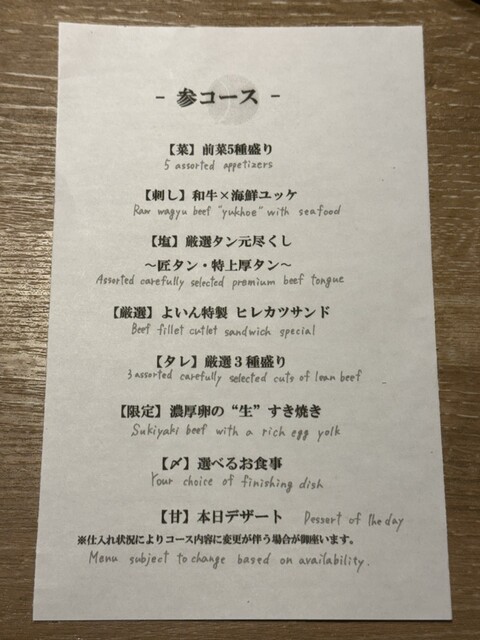 - 参コース -
【菜】前菜5種盛り
5 assorted appetizers
【刺し】和牛×海鮮ユッケ
Raw wagyu beef "yukhoe" with seafood
【塩】厳選タン元尽くし
～匠タン・特上厚タン～
Assorted carefully selected premium beef tongue
【厳選】よいん特製 ヒレカツサンド
Beef fillet cutlet sandwich special
【タレ】厳選３種盛り
3 assorted carefully selected cuts of lean beef
【限定】濃厚卵の“生”すき焼き
Sukiyaki beef with a rich egg yolk
【〆】選べるお食事
Your choice of finishing dish
【甘】本日デザート Dessert of the day
※仕入れ状況によりコース内容に変更が伴う場合が御座います。
Menu subject to change based on availability.